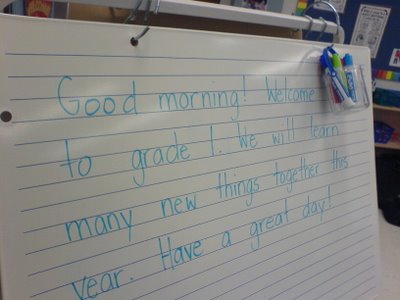 Good morning! Welcome
to grade 1. We will learn
many new things together this
year. Have a great day!